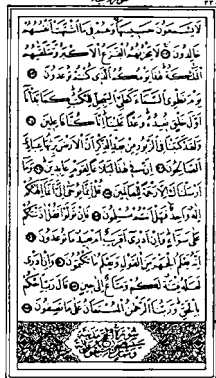 لَا يَسْمَعُونَ حَسِيسَهَا وَهُمْ فِي مَا اشْتَهَتْ أَنْفُسُهُمْ
خَالِدُونَ لَا يَحْزُنُهُمُ الْفَزَعُ الْأَكْبَرُ وَتَتَلَقَّاهُمُ
الْمَلَئِكَةُ هَذَا يَوْمُكُمُ الَّذِي كُنْتُمْ تُوعَدُونَ
يَوْمَ نَطْوِي السَّمَاءَ كَطَيِّ السِّجِلِّ لِلْكُتُبِ كَمَا بَدَأْنَا
أَوَّلَ خَلْقٍ نُعِيدُهُ وَعْدًا عَلَيْنَا إِنَّا كُنَّا فَاعِلِينَ
وَلَقَدْ كَتَبْنَا فِي الزَّبُورِ مِنْ بَعْدِ الذِّكْرِ أَنَّ الْأَرْضَ يَرِثُهَا عِبَادِيَ
الصَّالِحُونَ إِنَّ فِي هَذَا لَبَلَاغًا لِقَوْمٍ عَابِدِينَ وَمَا
أَرْسَلْنَاكَ إِلَّا رَحْمَةً لِلْعَالَمِينَ قُلْ إِنَّمَا يُوحَى إِلَيَّ أَنَّمَا إِلَهُكُمْ
إِلَهٌ وَاحِدٌ فَهَلْ أَنْتُمْ مُسْلِمُونَ فَإِنْ تَوَلَّوْا فَقُلْ آذَنْتُكُمْ
عَلَى سَوَاءٍ وَإِنْ أَدْرِي أَقَرِيبٌ أَمْ بَعِيدٌ مَا تُوعَدُونَ
إِنَّهُ يَعْلَمُ الْجَهْرَ مِنَ الْقَوْلِ وَيَعْلَمُ مَا تَكْتُمُونَ وَإِنْ أَدْرِي
لَعَلَّهُ فِتْنَةٌ لَكُمْ وَمَتَاعٌ إِلَى حِينٍ قَالَ رَبِّ احْكُمْ
بِالْحَقِّ وَرَبُّنَا الرَّحْمَنُ الْمُسْتَعَانُ عَلَى مَا تَصِفُونَ